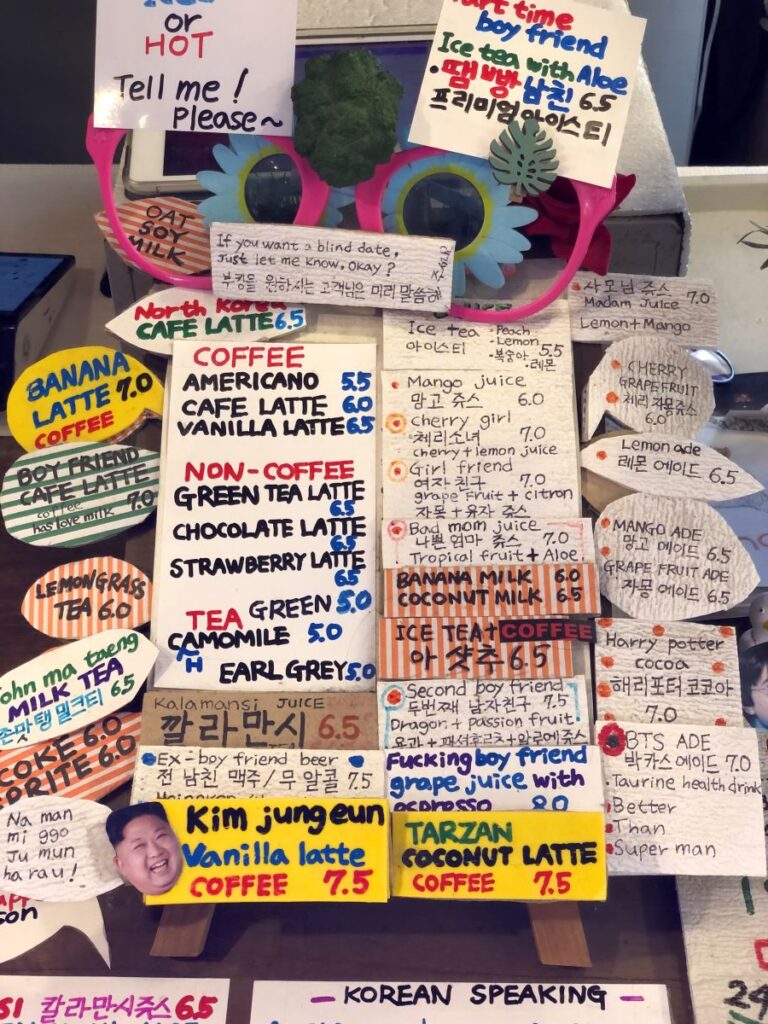 or
HOT
Tell me!
Please~
Part time
boy friend
Ice tea with Aloe
·땜빵 남친 6.5
프리미엄 아이스티
OAT
SOY
MILK
If you want a blind date,
Just let me know, okay?
부킹을 원하시는 고객님은 미리 말씀해
North Korea
CAFE LATTE 6.5
BANANA
LATTE 7.0
COFFEE
BOY FRIEND
CAFE LATTE
coffee 7.0
has love milk
LEMONGRASS
TEA 6.0
John ma taeng
MILK TEA
존마탱 밀크티 6.5
COKE 6.0
SPRITE 6.0
Na man
mi ggo
Ju mun
ha rau!
COFFEE
AMERICANO 5.5
CAFE LATTE 6.0
VANILLA LATTE 6.5
NON-COFFEE
GREEN TEA LATTE
6.5
CHOCOLATE LATTE
6.5
STRAWBERRY LATTE
6.5
TEA GREEN 5.0
CAMOMILE 5.0
H
EARL GREY 5.0
Kalamansi JUICE
깔라만시 6.5
EX-boy friend beer
전 남친 맥주/무 알콜 7.5
Kim jungeun
Vanilla latte
COFFEE 7.5
Ice tea ·Peach
·Lemon
아이스티 ·복숭아 5.5
·레몬
Mango juice
망고 쥬스 6.0
cherry girl
체리소녀 7.0
cherry+lemon juice
Girl friend
여자친구 7.0
grape fruit + citron
자몽 + 유자 쥬스
Bad mom juice
나쁜엄마 쥬스 7.0
Tropical fruit + Aloe
BANANA MILK 6.0
COCONUT MILK 6.5
ICE TEA+COFFEE
아 샷추 6.5
Second boy friend
두번째 남자친구 7.5
Dragon + passion fruit
용과+패션후르츠+알로에쥬스
Fucking boy friend
grape juice with
espresso 8.0
TARZAN
COCONUT LATTE
COFFEE 7.5
사모님 쥬스 7.0
Madam Juice
Lemon+Mango
CHERRY
GRAPE FRUIT
체리 자몽쥬스
6.0
Lemon ade
레몬 에이드 6.5
MANGO ADE
망고 에이드 6.5
GRAPE FRUIT ADE
자몽 에이드 6.5
Harry potter
cocoa
해리포터 코코아
7.0
BTS ADE
박카스 에이드 7.0
·Taurine health drink
·Better
·Than
·Super man
son
SI 칼라만시쥬스 6.5
- KOREAN SPEAKING -
24